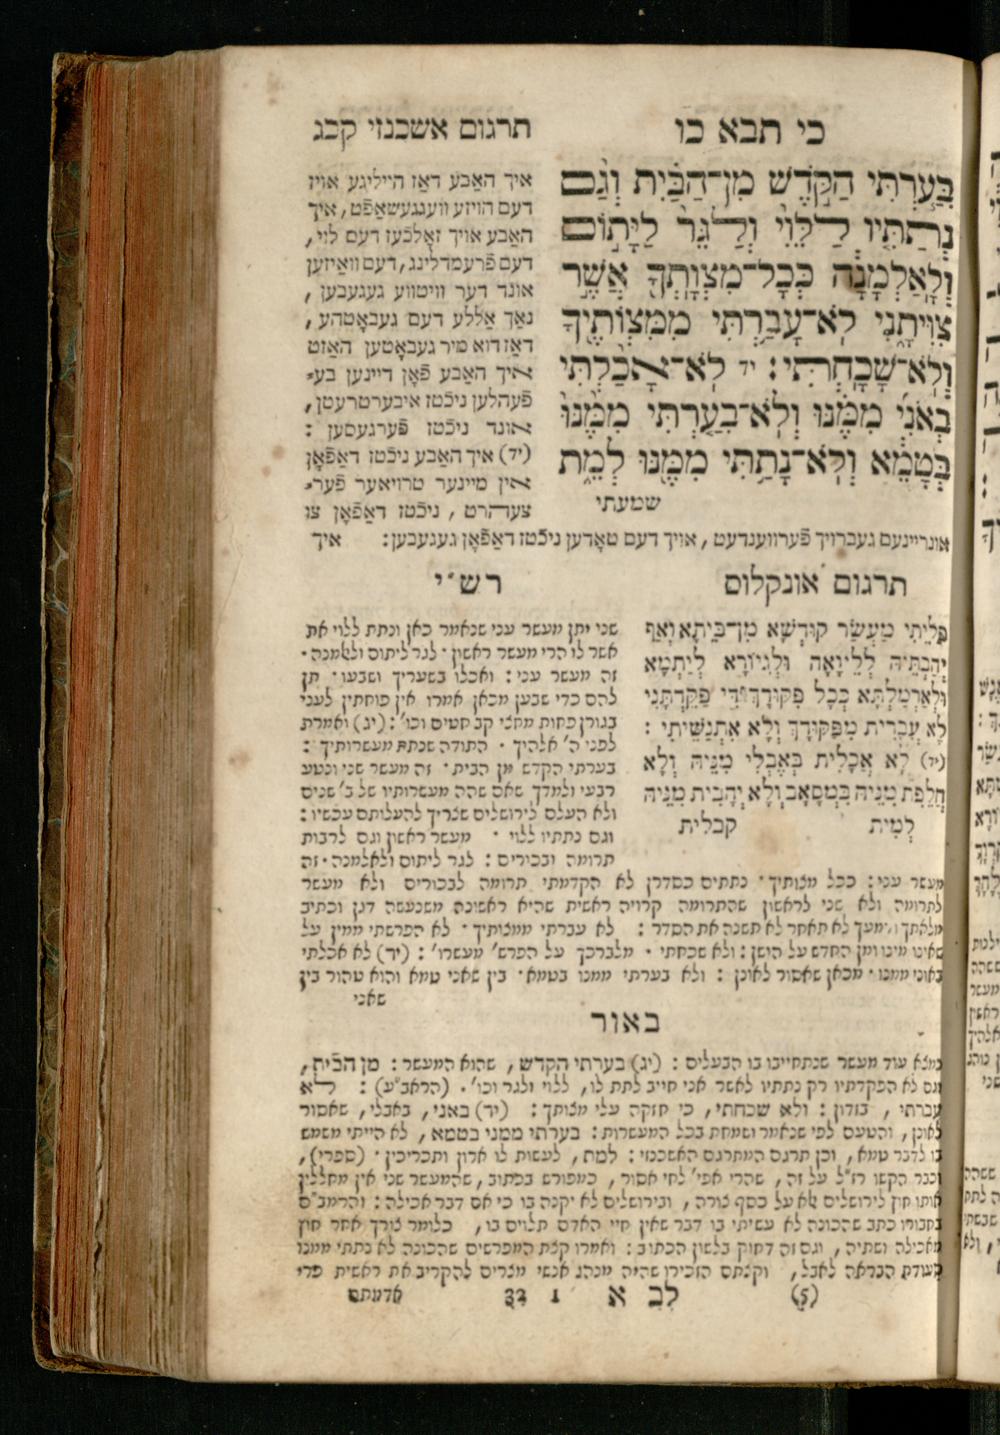 כי תבא כו
תרגום אשכנזי קכג
בִּעַרְתִּי הַקֹּדֶשׁ מִן־הַבַּיִת וְגַם
נְתַתִּיו לַלֵּוִי וְלַגֵּר לַיָּתוֹם
וְלָאַלְמָנָה כְּכָל־מִצְוָתְךָ אֲשֶׁר
צִוִּיתָנִי לֹא־עָבַרְתִּי מִמִּצְוֹתֶיךָ
וְלֹא־שָׁכָחְתִּי: יד לֹא־אָכַלְתִּי
בְאֹנִי מִמֶּנּוּ וְלֹא־בִעַרְתִּי מִמֶּנּוּ
בְּטָמֵא וְלֹא־נָתַתִּי מִמֶּנּוּ לְמֵת
שמעתי
איך האבע דאז הייליגע אויז
דעם הויזע וועגגעשאפֿט, איך
האבע אויך זאלכעז דעם לוי,
דעם פֿרעמדלינג, דעם וואיזען
אונד דער וויטווע געגעבען,
נאך אללע דעם געבאטהע,
דאז דוא מיר געבאטען האזט
איך האבע פֿאן דיינען בע־
פֿעהלען ניכֿטז איבערטרעטן,
אונד ניכֿטז פֿערגעסען:
(יד) איך האבע ניכֿטז דאפֿאן
אין מיינער טרויאער פֿער־
צעהרט, ניכֿטז דאפֿאן צו
אונריינעם געברויך פֿערווענדעט, אויך דעם טאדען ניכֿטז דאפֿאן געגעבען: איך
תרגום אונקלוס
פַּלֵּיתִי מַעְשַׂר קוּדְשָׁא מִן־בֵּיתָא וְאַף
יְהַבְתֵּיהּ לְלֵיוָאָה וּלְגִיּוֹרָא לְיִתְמָא
וּלְאַרְמַלְתָּא כְּכָל פִּקּוּדָךְ דִּי פַקֵּדְתָּנִי
לָא עֲבָרִית מִפִּקּוּדָךְ וְלָא אִתְנַשֵּׁיתִי:
(יד) לָא אֲכָלִית בְּאֶבְלִי מִנֵּיהּ וְלָא
חֲלֵפִת מִנֵּיהּ בִּמְסָאָב וְלָא יְהָבִית מִנֵּיהּ
לְמִית קבלית
רש״י
שני יתן מעשר עני שנאמר כאן ונתת ללוי את
אשר לו הרי מעשר ראשון · לגר ליתום ולאלמנה ·
זה מעשר עני: ואכלו בשעריך ושבעו · תן
להם כדי שבען מכאן אמרו אין פוחתין לעני
בגורן פחות מחצי קב חטים וכו׳: (יג) ואמרת
לפני ה׳ אלהיך · התודה שנתת מעשרותיך:
בערתי הקדש מן הבית · זה מעשר שני ונטע
רבעי ולמדך שאם שהה מעשרותיו של ב׳ שנים
ולא העלם לירושלים שצריך להעלותם עכשיו:
וגם נתתיו ללוי · מעשר ראשון וגם לרבות
תרומה ובכורים: לגר ליתום ולאלמנה · זה
מעשר עני: ככל מצותיך · נתתים כסדרן לא הקדמתי תרומה לבכורים ולא מעשר
לתרומה ולא שני לראשון שהתרומה קרויה ראשית שהיא ראשונה משנעשה דגן וכתיב
מלאתך ודמעך לא תאחר לא תשנה את הסדר: לא עברתי ממצותיך · לא הפרשתי ממין על
שאינו מינו ומן החדש על הישן: ולא שכחתי · מלברכך על הפרש׳ מעשרו׳: (יד) לא אכלתי
באוני ממנו · מכאן שאסור לאונן: ולא בערתי ממנו בטמא · בין שאני טמא והוא טהור בין
שאני
באור
נמצא עוד מעשר שנתחייבו בו הבעלים: (יג) בערתי הקדש, שהוא המעשר: מן הבית,
וגם לא הפקדתיו רק נתתיו לאשר אני חייב לתת לו, ללוי ולגר וכו׳. (הראב״ע): לא
עברתי, בזדון: ולא שכחתי, כי חזקה עלי מצותך: (יד) באני, באבלי, שאסור
לאונן, והטעם לפי שנאמר ושמחת בכל המעשרות: בערתי ממני בטמא, לא הייתי משמש
בו לדבר טמא, וכן תרגם המתרגם האשכנזי: למת, לעשות לו ארון ותכריכין · (ספרי),
וכבר הקשו רז״ל על זה, שהרי אפי׳ לחי אסור, כמפורש בכתוב, שהמעשר שני אין מחללין
אותו חוץ לירושלים אלא על כסף צורה, ובירושלים לא יקנה בו כי אם דבר אכילה: והרמב״ם
בחבורו כתב שהכונה לא עשיתי בו דבר שאין חיי האדם תלוים בו, כלומר צורך אחר חוץ
מאכילה ושתיה, וגם זה דחוק בלשון הכתוב: ואמרו קצת המפרשים שהכונה לא נתתי ממנו
סעודת הבראה לאבל, וקצתם הזכירו שהיה מנהג אנשי מצרים להקריב את ראשית פרי
(5) לב א 1 32 אדמתם